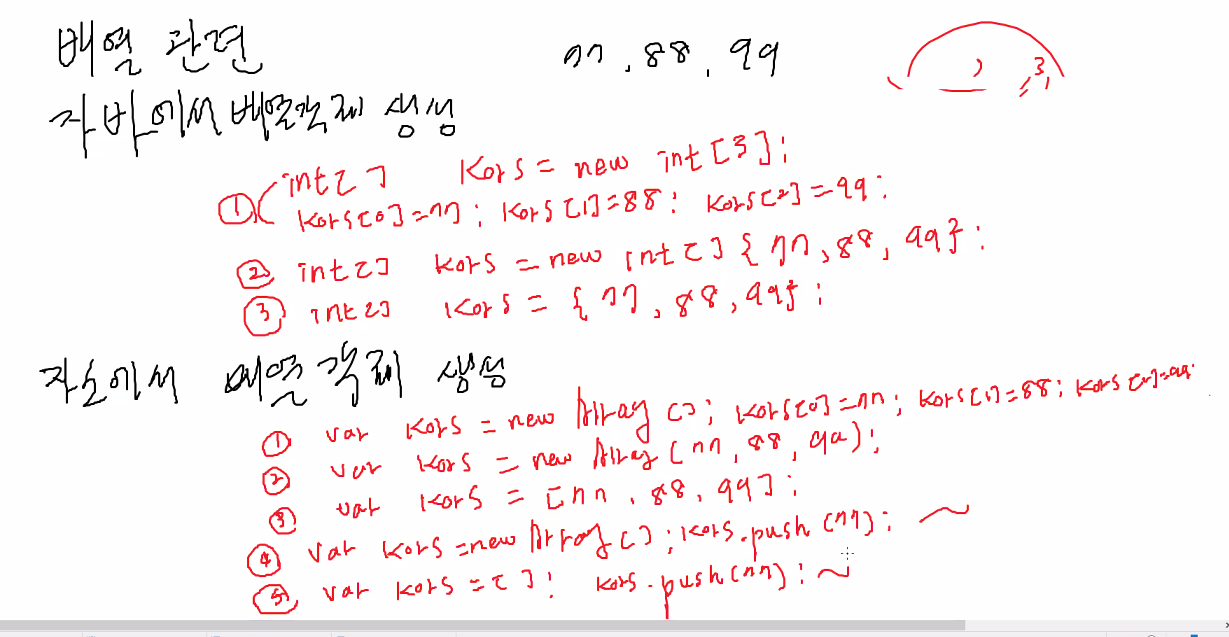 배열 관련
77, 88, 99
, 3,
자바에서 배열객체 생성
① int[] kors = new int[3];
kors[0]=77; kors[1]=88; kors[2]=99;
② int[] kors = new int[] {77, 88, 99};
③ int[] kors = {77, 88, 99};
자스에서 배열 객체 생성
① var kors = new Array(); kors[0]=77; kors[1]=88; kors[2]=99;
② var kors = new Array(77, 88, 99);
③ var kors = [77, 88, 99];
④ var kors = new Array(); kors.push(77); ~
⑤ var kors = []; kors.push(77); ~